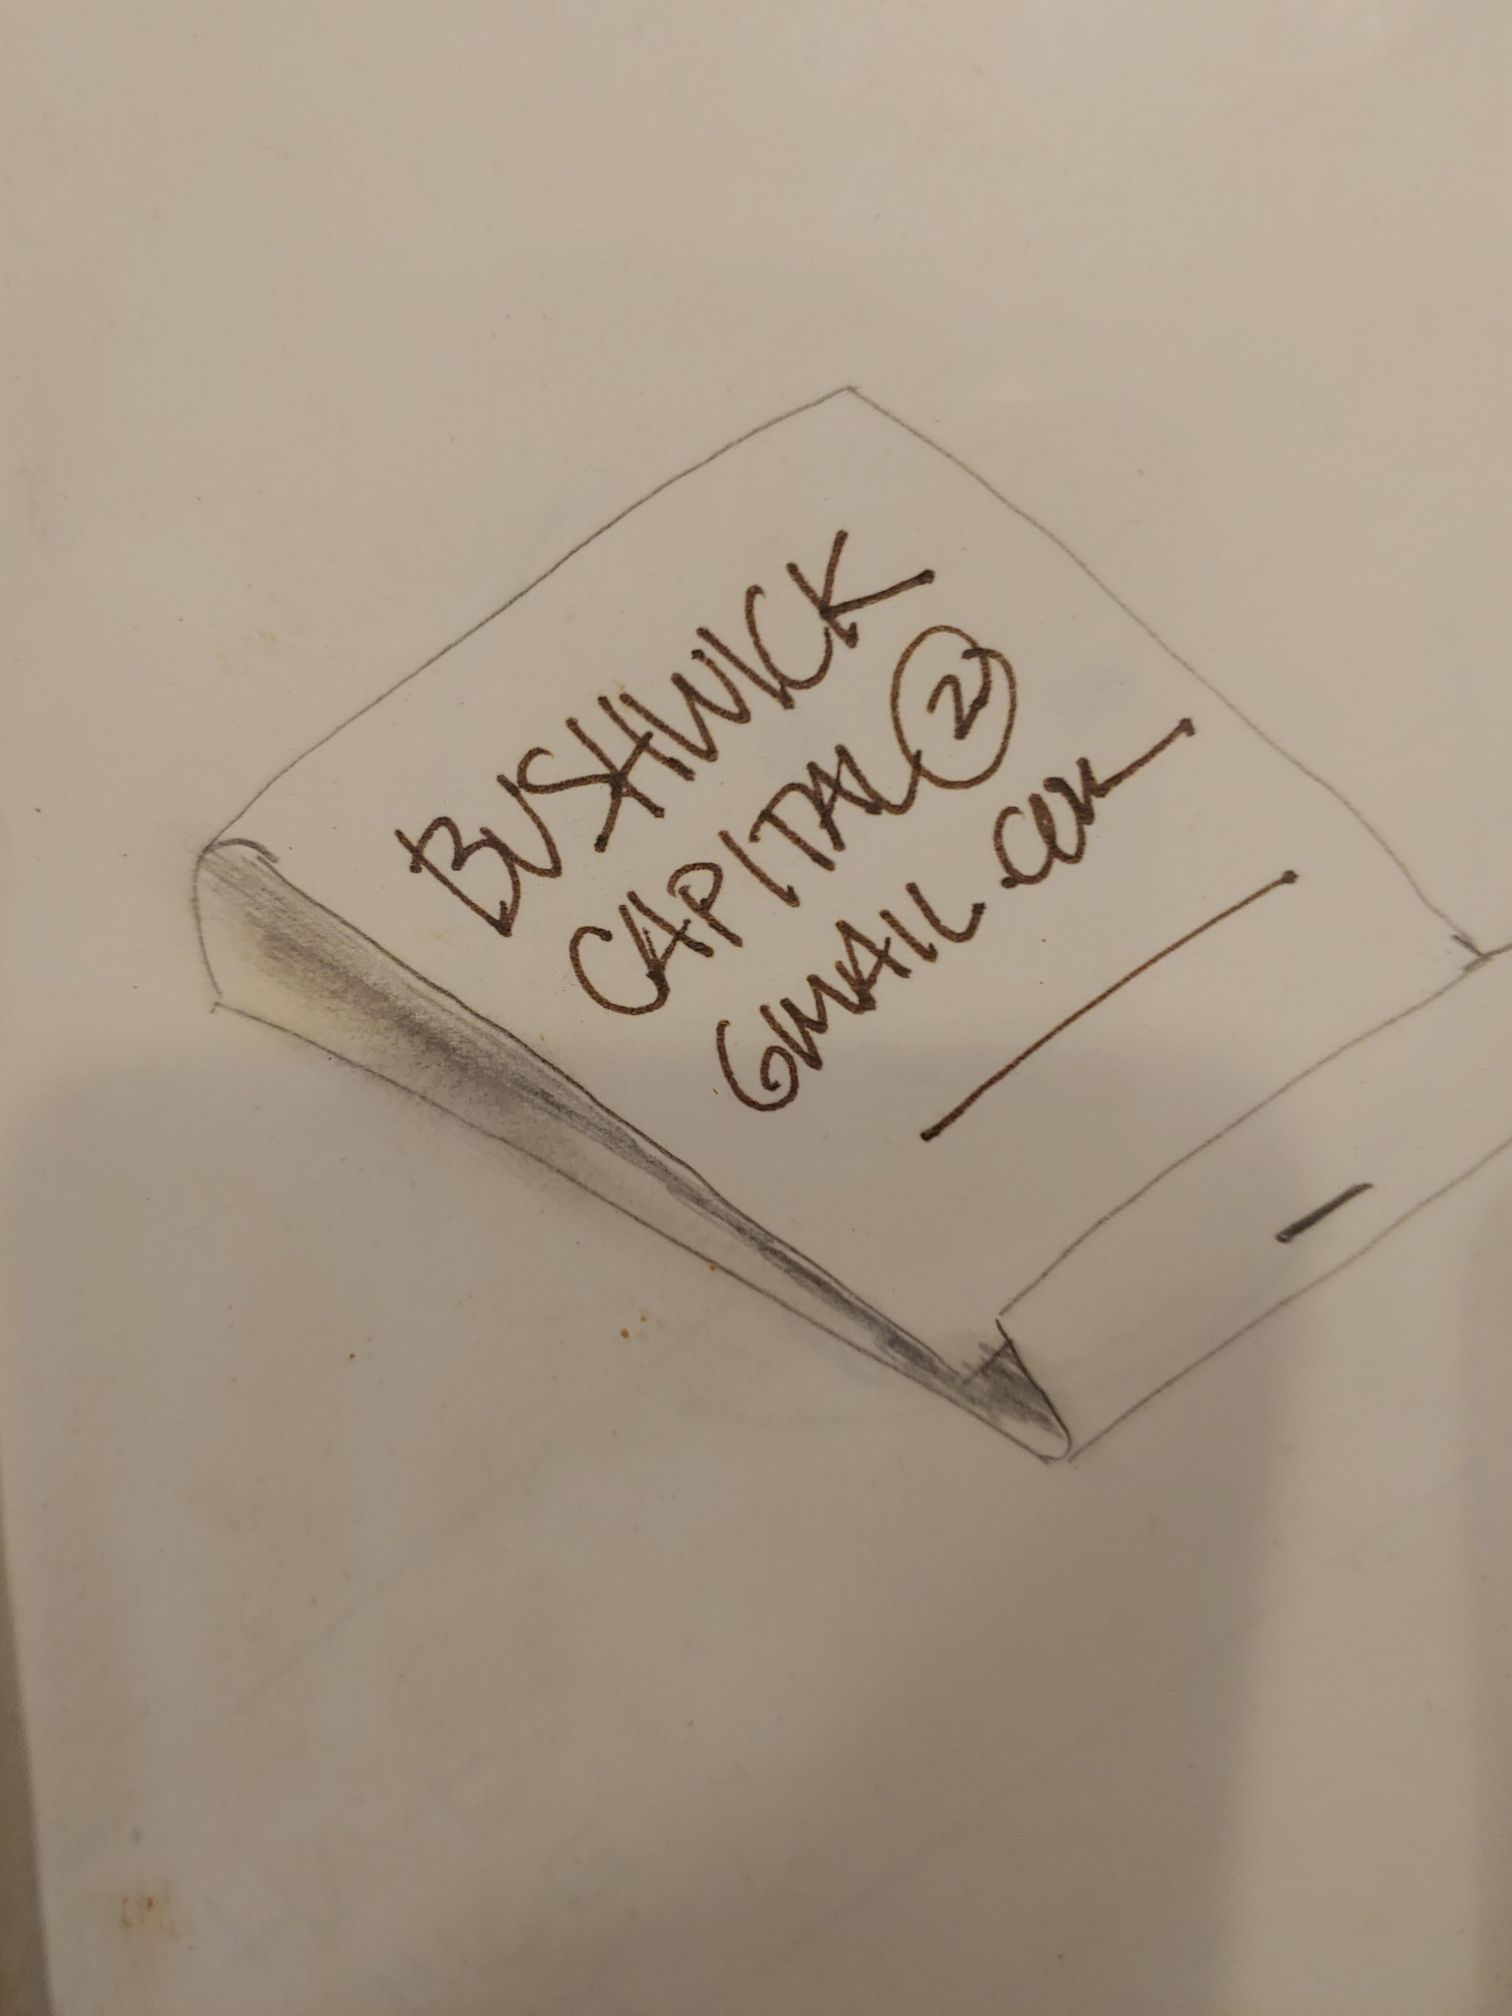 BUSHWICK
CAPITAL@
GMAIL.COM